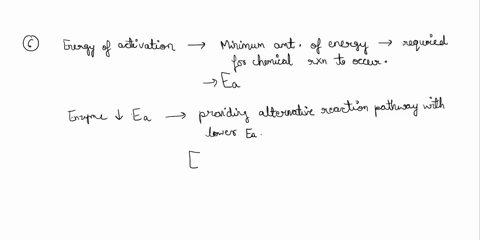 ⑥ Energy of activation → Minimum amt. of energy → required
for chemical rxn to occur.
→ Ea
Enzyme ↓ Ea → providing alternative reaction pathway with
lower Ea.
[